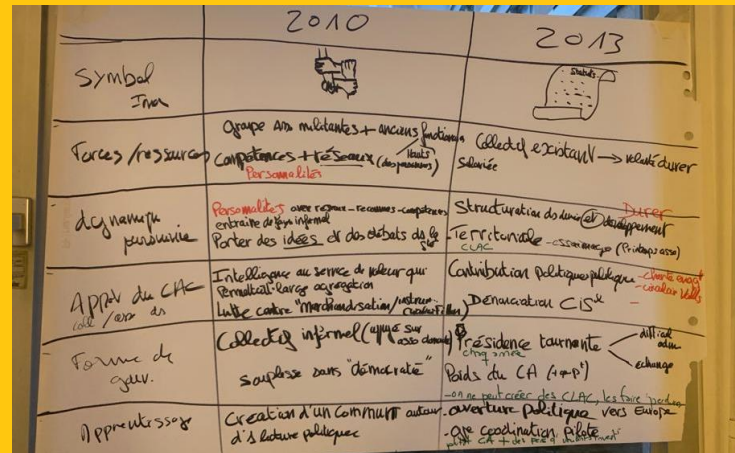 2010
2013
Symbol
Statuts
Forces / ressources
Groupe asso militantes + anciens fonctionn
hauts
compétences + réseaux (des personnes)
Personnalités
Collectif existant → volonté durer
Salariée
dynamique
poursuivie
Personnalités avec réseaux - reconnues - compétences
entraine de façon informel
Porter des idées et des débats ds la
Durer
Structuration ds durée et développement
- Territoriale - essaimage (Printemps asso)
CLAC
Apport du CAC
coll / asso ds
Intelligence au service de valeur qui
Permettait large agrégation
Lutte contre "Marchandisation /
Contribution Politiques publiques
- charte engagt
- circulaire Valls
Dénonciation CIS
Forme de
gouv.
Collectif informel (appuyé sur
asso
souplesse sans "démocratie"
Présidence tournante
chq année
échange
Poids du CA
- on ne peut créer des CLAC, les faire
Apprentissage
Création d'un commun autour
d'1 lecture politique
- ouverture politique vers Europe
- que coordination pilote
petit CA +